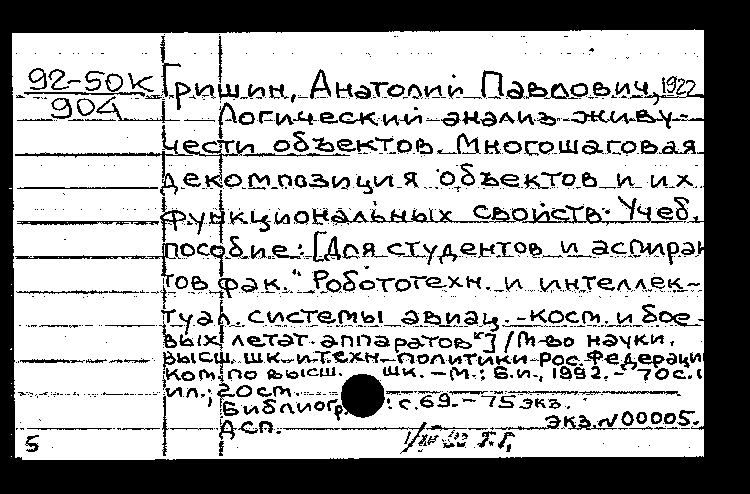 92-50К Гришин, Анатолий Павлович, 1922
904
Логический анализ живу-
чести объектов. Многошаговая
декомпозиция объектов и их
функциональных свойств. Учеб.
пособие: [Для студентов и аспиран
тов фак. "Робототехн. и интеллек-
туал. системы авиац.-косм. и бое-
вых летат. аппаратов"] / М-во науки,
высш. шк. и техн. политики Рос. Федерации
Ком. по высш. шк. - М.: Б.и., 1992. - 70 с.
ил.; 20 см.
Библиогр.: с. 69. - 75 экз.
ДСП. экз. N 00005.
5